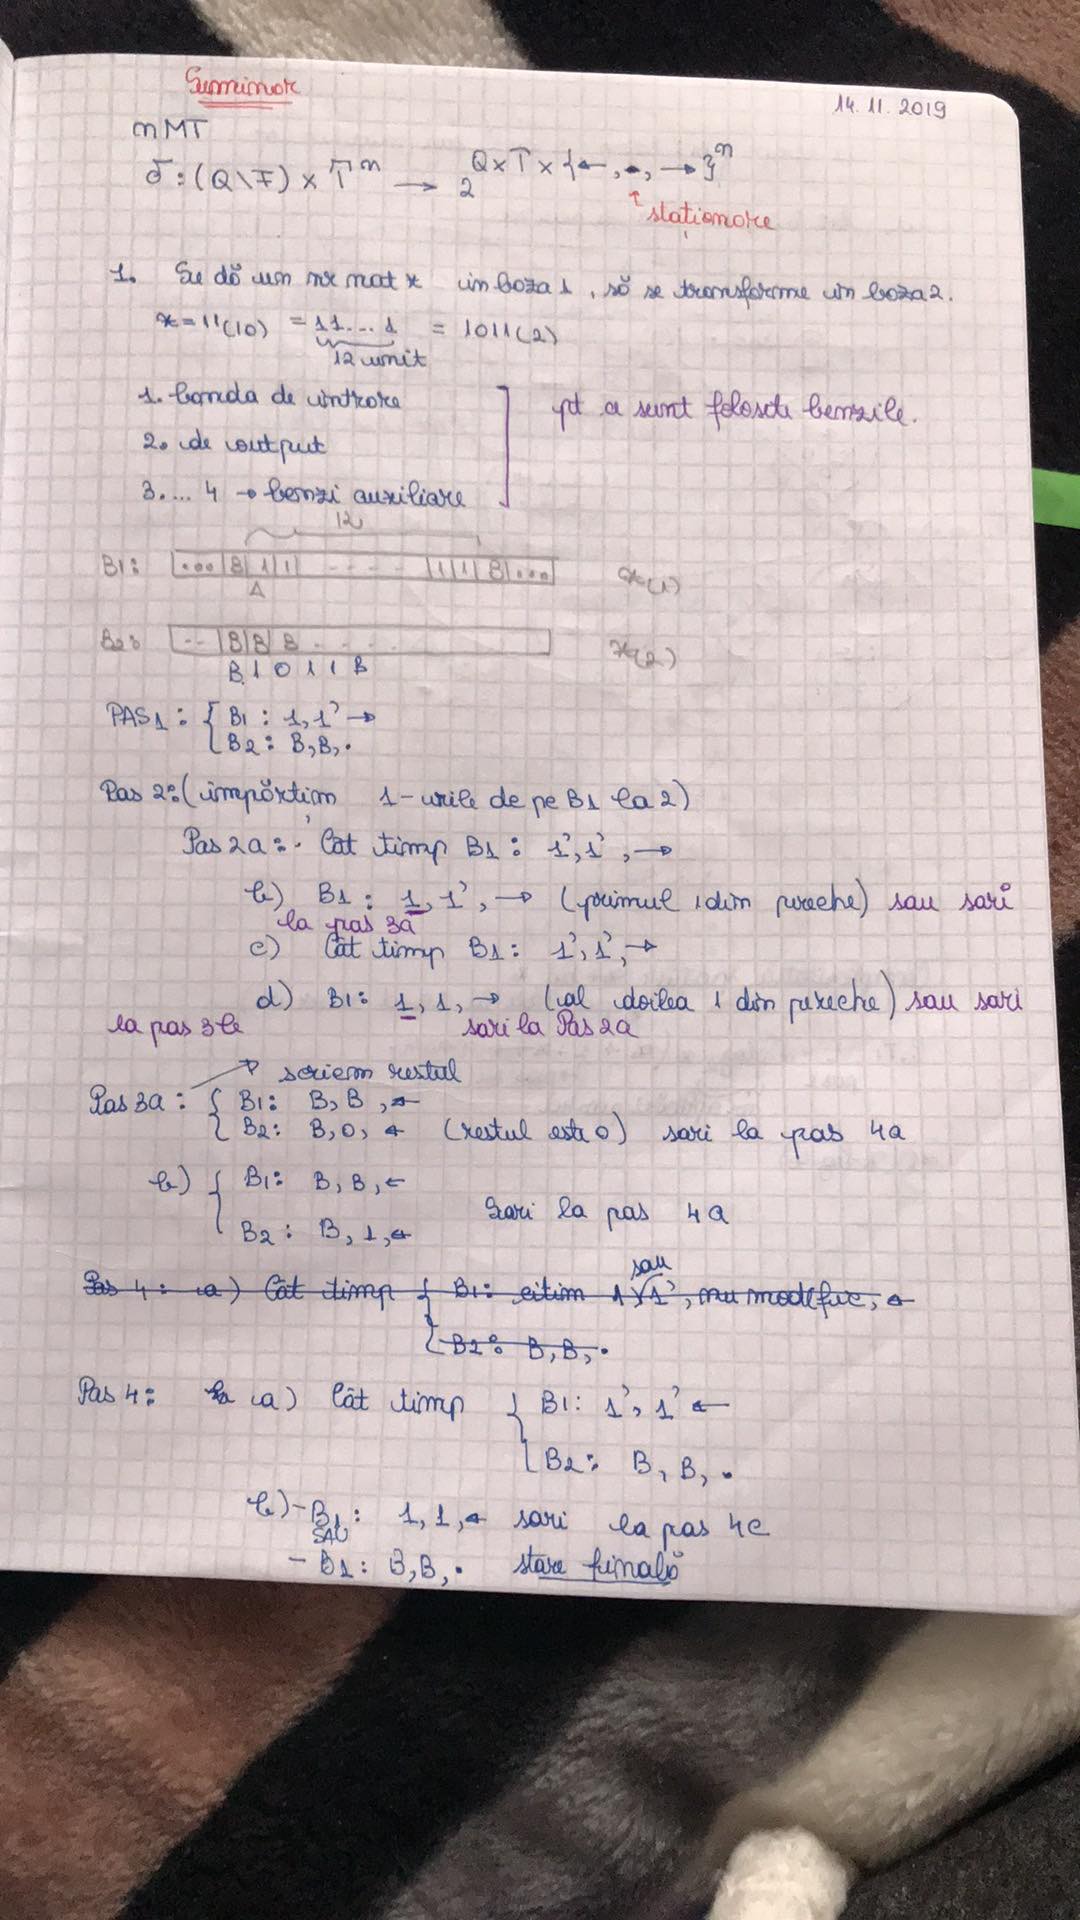 Seminar
14.11.2019
nMT
δ:(Q\F) × Γⁿ → 2^Q×Γ×{←,-,→}ⁿ
↑ staționare
1. Se dă un nr nat x în baza 1, să se transforme în baza 2.
x=11(10) = 11...1 = 1011(2)
12 unit
1. banda de intrare
2. de output
3.... 4 → benzi auxiliare
pt a sunt folosite benzile.
12
B1: ...|B|1|1| - - - - |1|1|B|... x(1)
Δ
B2: --|B|B|B - - - x(2)
B 1 0 1 1 B
PAS1: { B1: 1,1' →
B2: B,B,.
Pas 2:(împărțim 1-urile de pe B1 la 2)
Pas 2a:. Cât timp B1: 1',1',→
b) B1: 1,1',→ (primul 1 din pereche) sau sari
la pas 3a
c) Cât timp B1: 1',1',→
d) B1: 1,1,→ (al doilea 1 din pereche) sau sari
la pas 3b sari la Pas 2a
→ scriem restul
Pas 3a: { B1: B,B,←
B2: B,0,← (restul este 0) sari la pas 4a
b) { B1: B,B,←
Sari la pas 4a
B2: B,1,←
sau
Pas 4: a) Cât timp { B1: citim 1 1', nu modific, ←
B2: B,B,.
Pas 4: a) Cât timp { B1: 1',1' ←
B2: B,B,.
b) - B1: 1,1,← sari la pas 4c
SAU
- B1: B,B,. stare finală